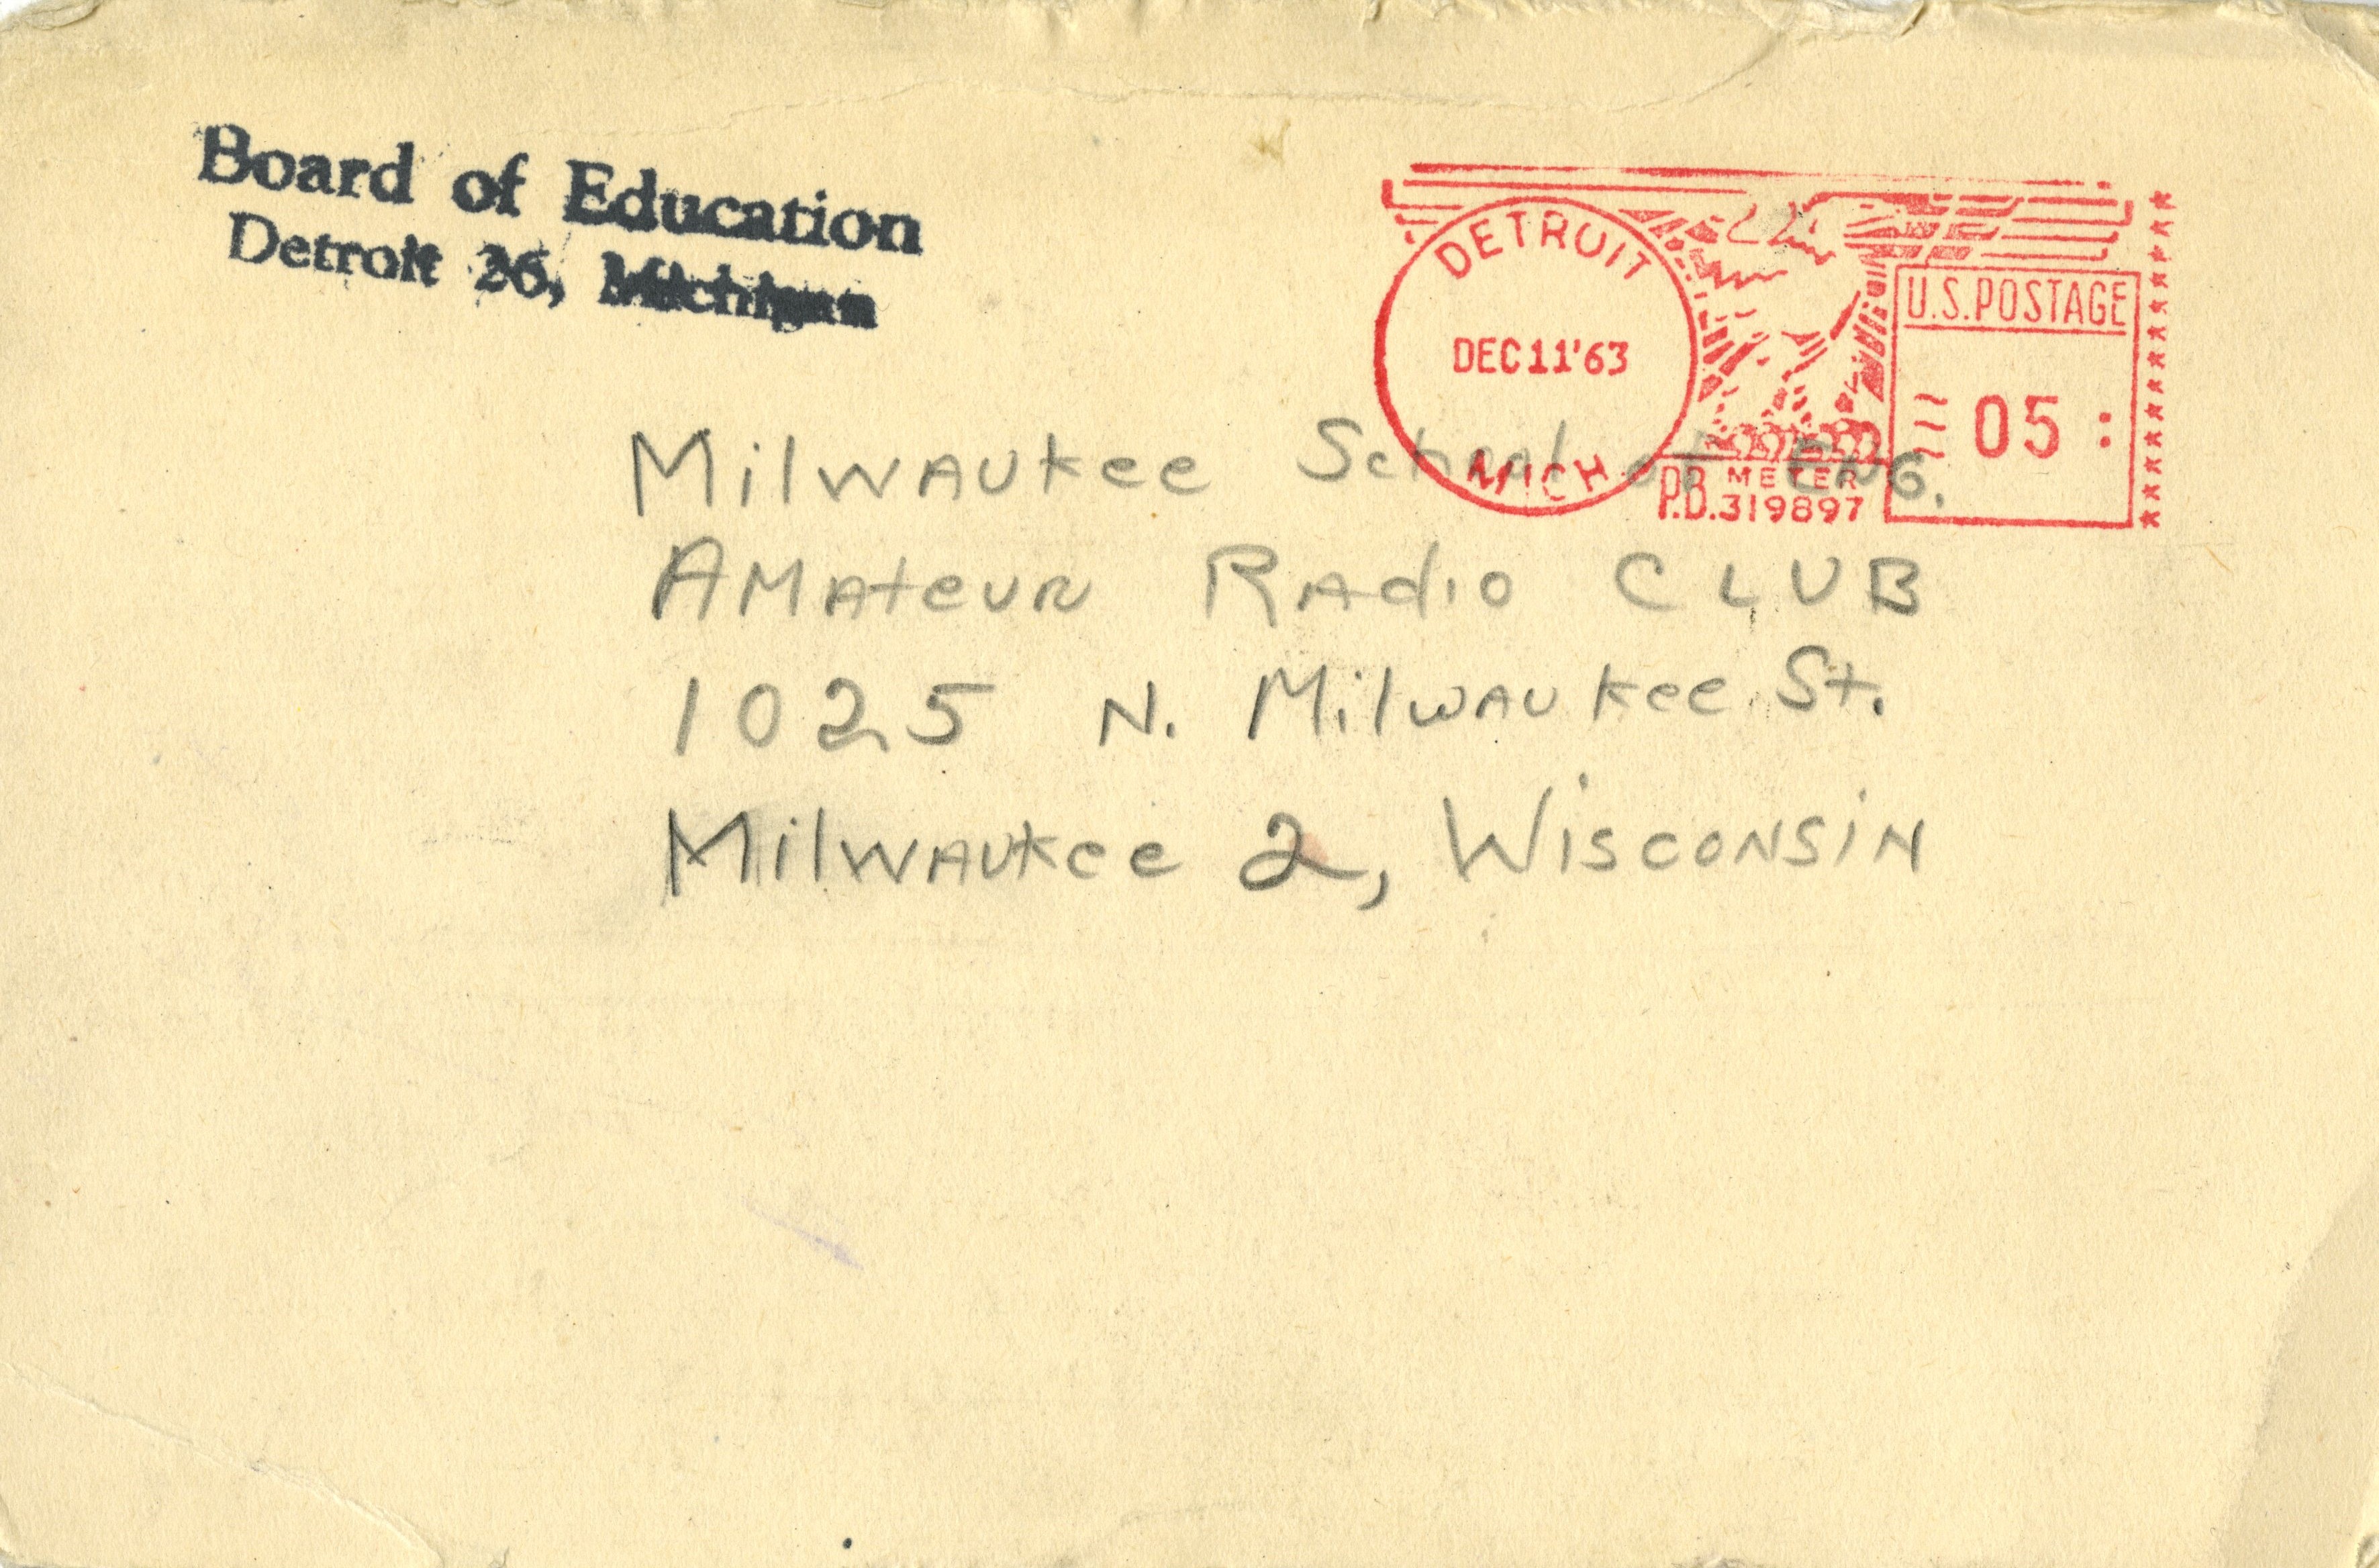 Board of Education
Detroit 26, Michigan
DETROIT
DEC 11 '63
MICH
U.S. POSTAGE
05
P.B. METER
319897
Milwaukee School of ENG.
Amateur Radio CLUB
1025 N. Milwaukee St.
Milwaukee 2, Wisconsin